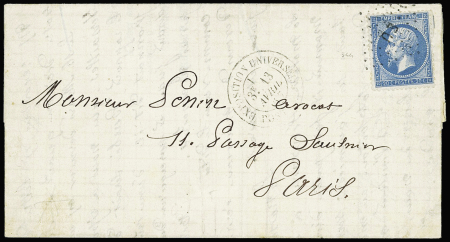 EMPIRE FRANC
EXPOSITION UNIVERSELLE
13
AVRIL
20 C POSTES 20 C
Monsieur Penin avocat
11. Passage Saulnier
Paris.